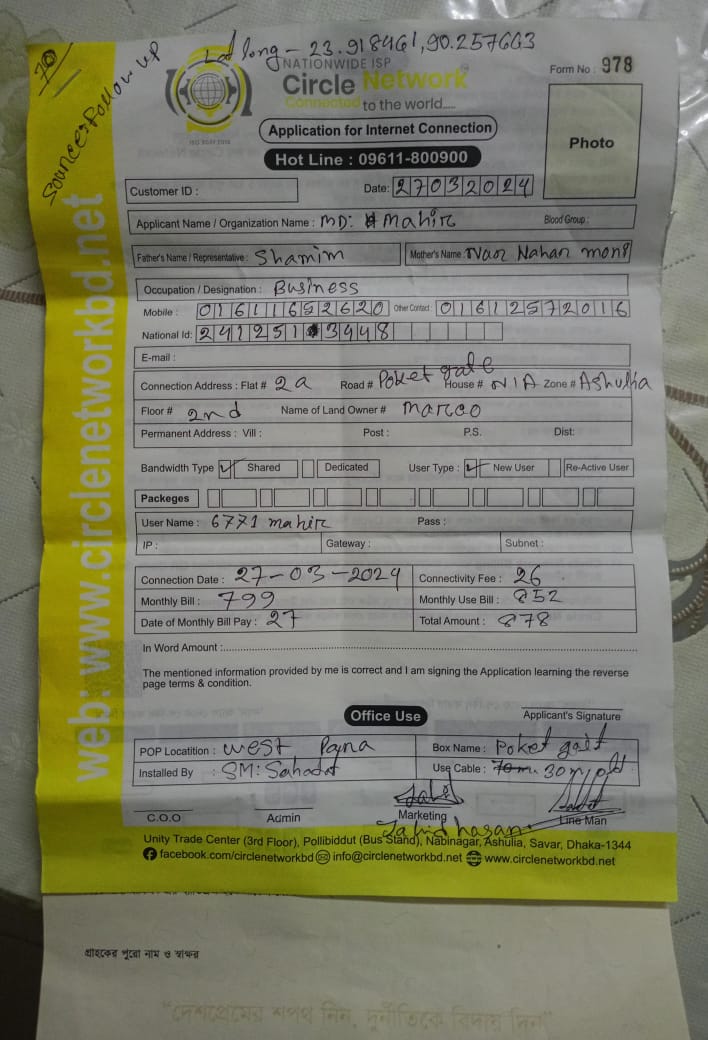 70
Source: Follow up
Lat long - 23.918461,90.257663
NATIONWIDE ISP
Circle Network
Connected to the world.....
Form No : 978
Application for Internet Connection
Hot Line : 09611-800900
Photo
Customer ID :
Date: 27032024
Applicant Name / Organization Name : MD: Mahir Blood Group :
Father's Name / Representative : Shamim Mother's Name : Nahar moni
Occupation / Designation : Business
Mobile : 01611652620 Other Contact : 01612572016
National Id: 241251 3448
E-mail :
Connection Address : Flat # 2a Road # Poket gate House # N/A Zone # Ashulia
Floor # 2nd Name of Land Owner # maroo
Permanent Address : Vill : Post : P.S. Dist:
Bandwidth Type ✓ Shared Dedicated User Type : ✓ New User Re-Active User
Packeges
User Name : 6771 mahir Pass :
IP : Gateway : Subnet :
Connection Date : 27-03-2024 Connectivity Fee : 26
Monthly Bill : 799 Monthly Use Bill : 852
Date of Monthly Bill Pay : 27 Total Amount : 878
In Word Amount :
The mentioned information provided by me is correct and I am signing the Application learning the reverse
page terms & condition.
Office Use
Applicant's Signature
POP Locatition : west Box Name : Poket gait
Installed By : SM: Sahadat Use Cable : 70m. 30m old
C.O.O Acmin Marketing Line Man
Zahid hasan
Unity Trade Center (3rd Floor), Pollibiddut (Bus Stand), Nabinagar, Ashulia, Savar, Dhaka-1344
facebook.com/circlenetworkbd info@circlenetworkbd.net www.circlenetworkbd.net
web: www.circlenetworkbd.net
গ্রাহকের পুরো নাম ও স্বাক্ষর
"দেশপ্রেমের শপথ নিন, দুর্নীতিকে বিদায় দিন"